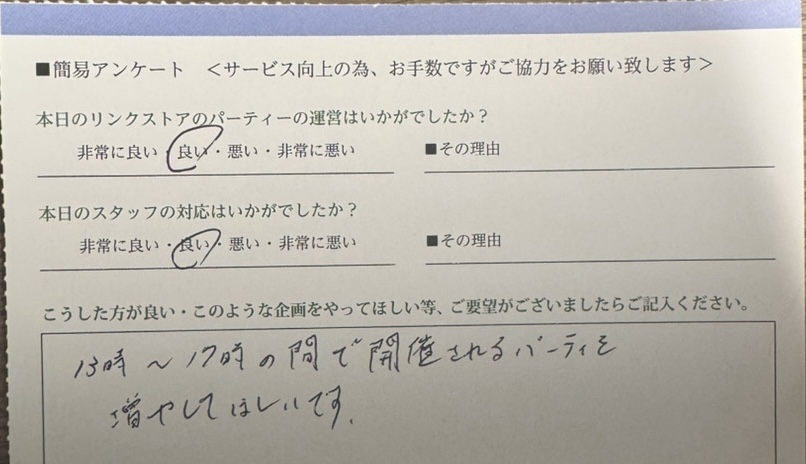 ■簡易アンケート <サービス向上の為、お手数ですがご協力をお願い致します>
本日のリンクストアのパーティーの運営はいかがでしたか？
非常に良い・良い・悪い・非常に悪い ■その理由
本日のスタッフの対応はいかがでしたか？
非常に良い・良い・悪い・非常に悪い ■その理由
こうした方が良い・このような企画をやってほしい等、ご要望がございましたらご記入ください。
13時～17時の間で開催されるパーティを
増やしてほしいです。